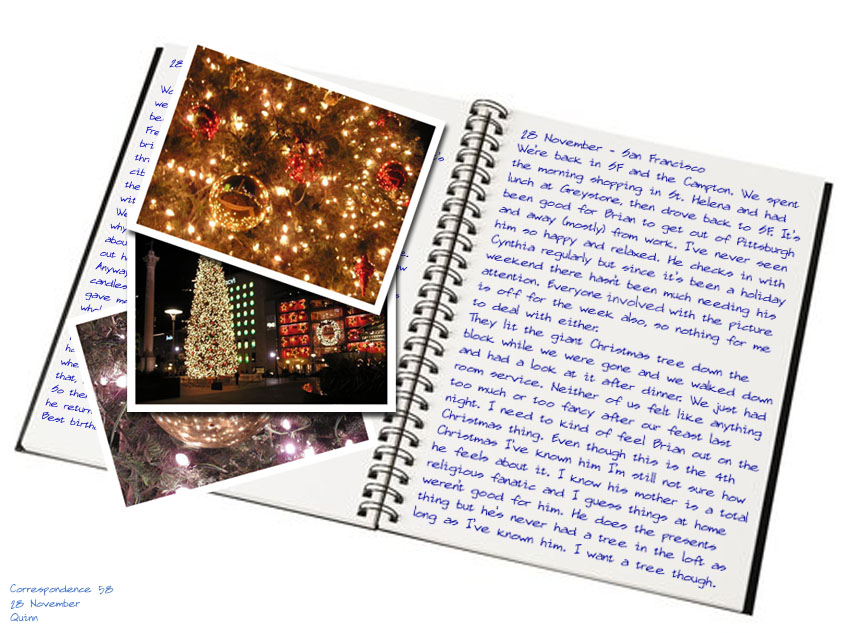 28
we
the
We
why
out
Anyway
candles
gave
that,
So
he
Best
28 November - San Francisco
We're back in SF and the Campton. We spent
the morning shopping in St. Helena and had
lunch at Greystone, then drove back to SF. It's
been good for Brian to get out of Pittsburgh
and away (mostly) from work. I've never seen
him so happy and relaxed. He checks in with
Cynthia regularly but since it's been a holiday
weekend there hasn't been much needing his
attention. Everyone involved with the picture
is off for the week also, so nothing for me
to deal with either.
They lit the giant Christmas tree down the
block while we were gone and we walked down
and had a look at it after dinner. We just had
room service. Neither of us felt like anything
too much or too fancy after our feast last
night. I need to kind of feel Brian out on the
Christmas thing. Even though this is the 4th
Christmas I've known him I'm still not sure how
he feels about it. I know his mother is a total
religious fanatic and I guess things at home
weren't good for him. He does the presents
thing but he's never had a tree in the loft as
long as I've known him. I want a tree though.
Correspondence 58
28 November
Quinn